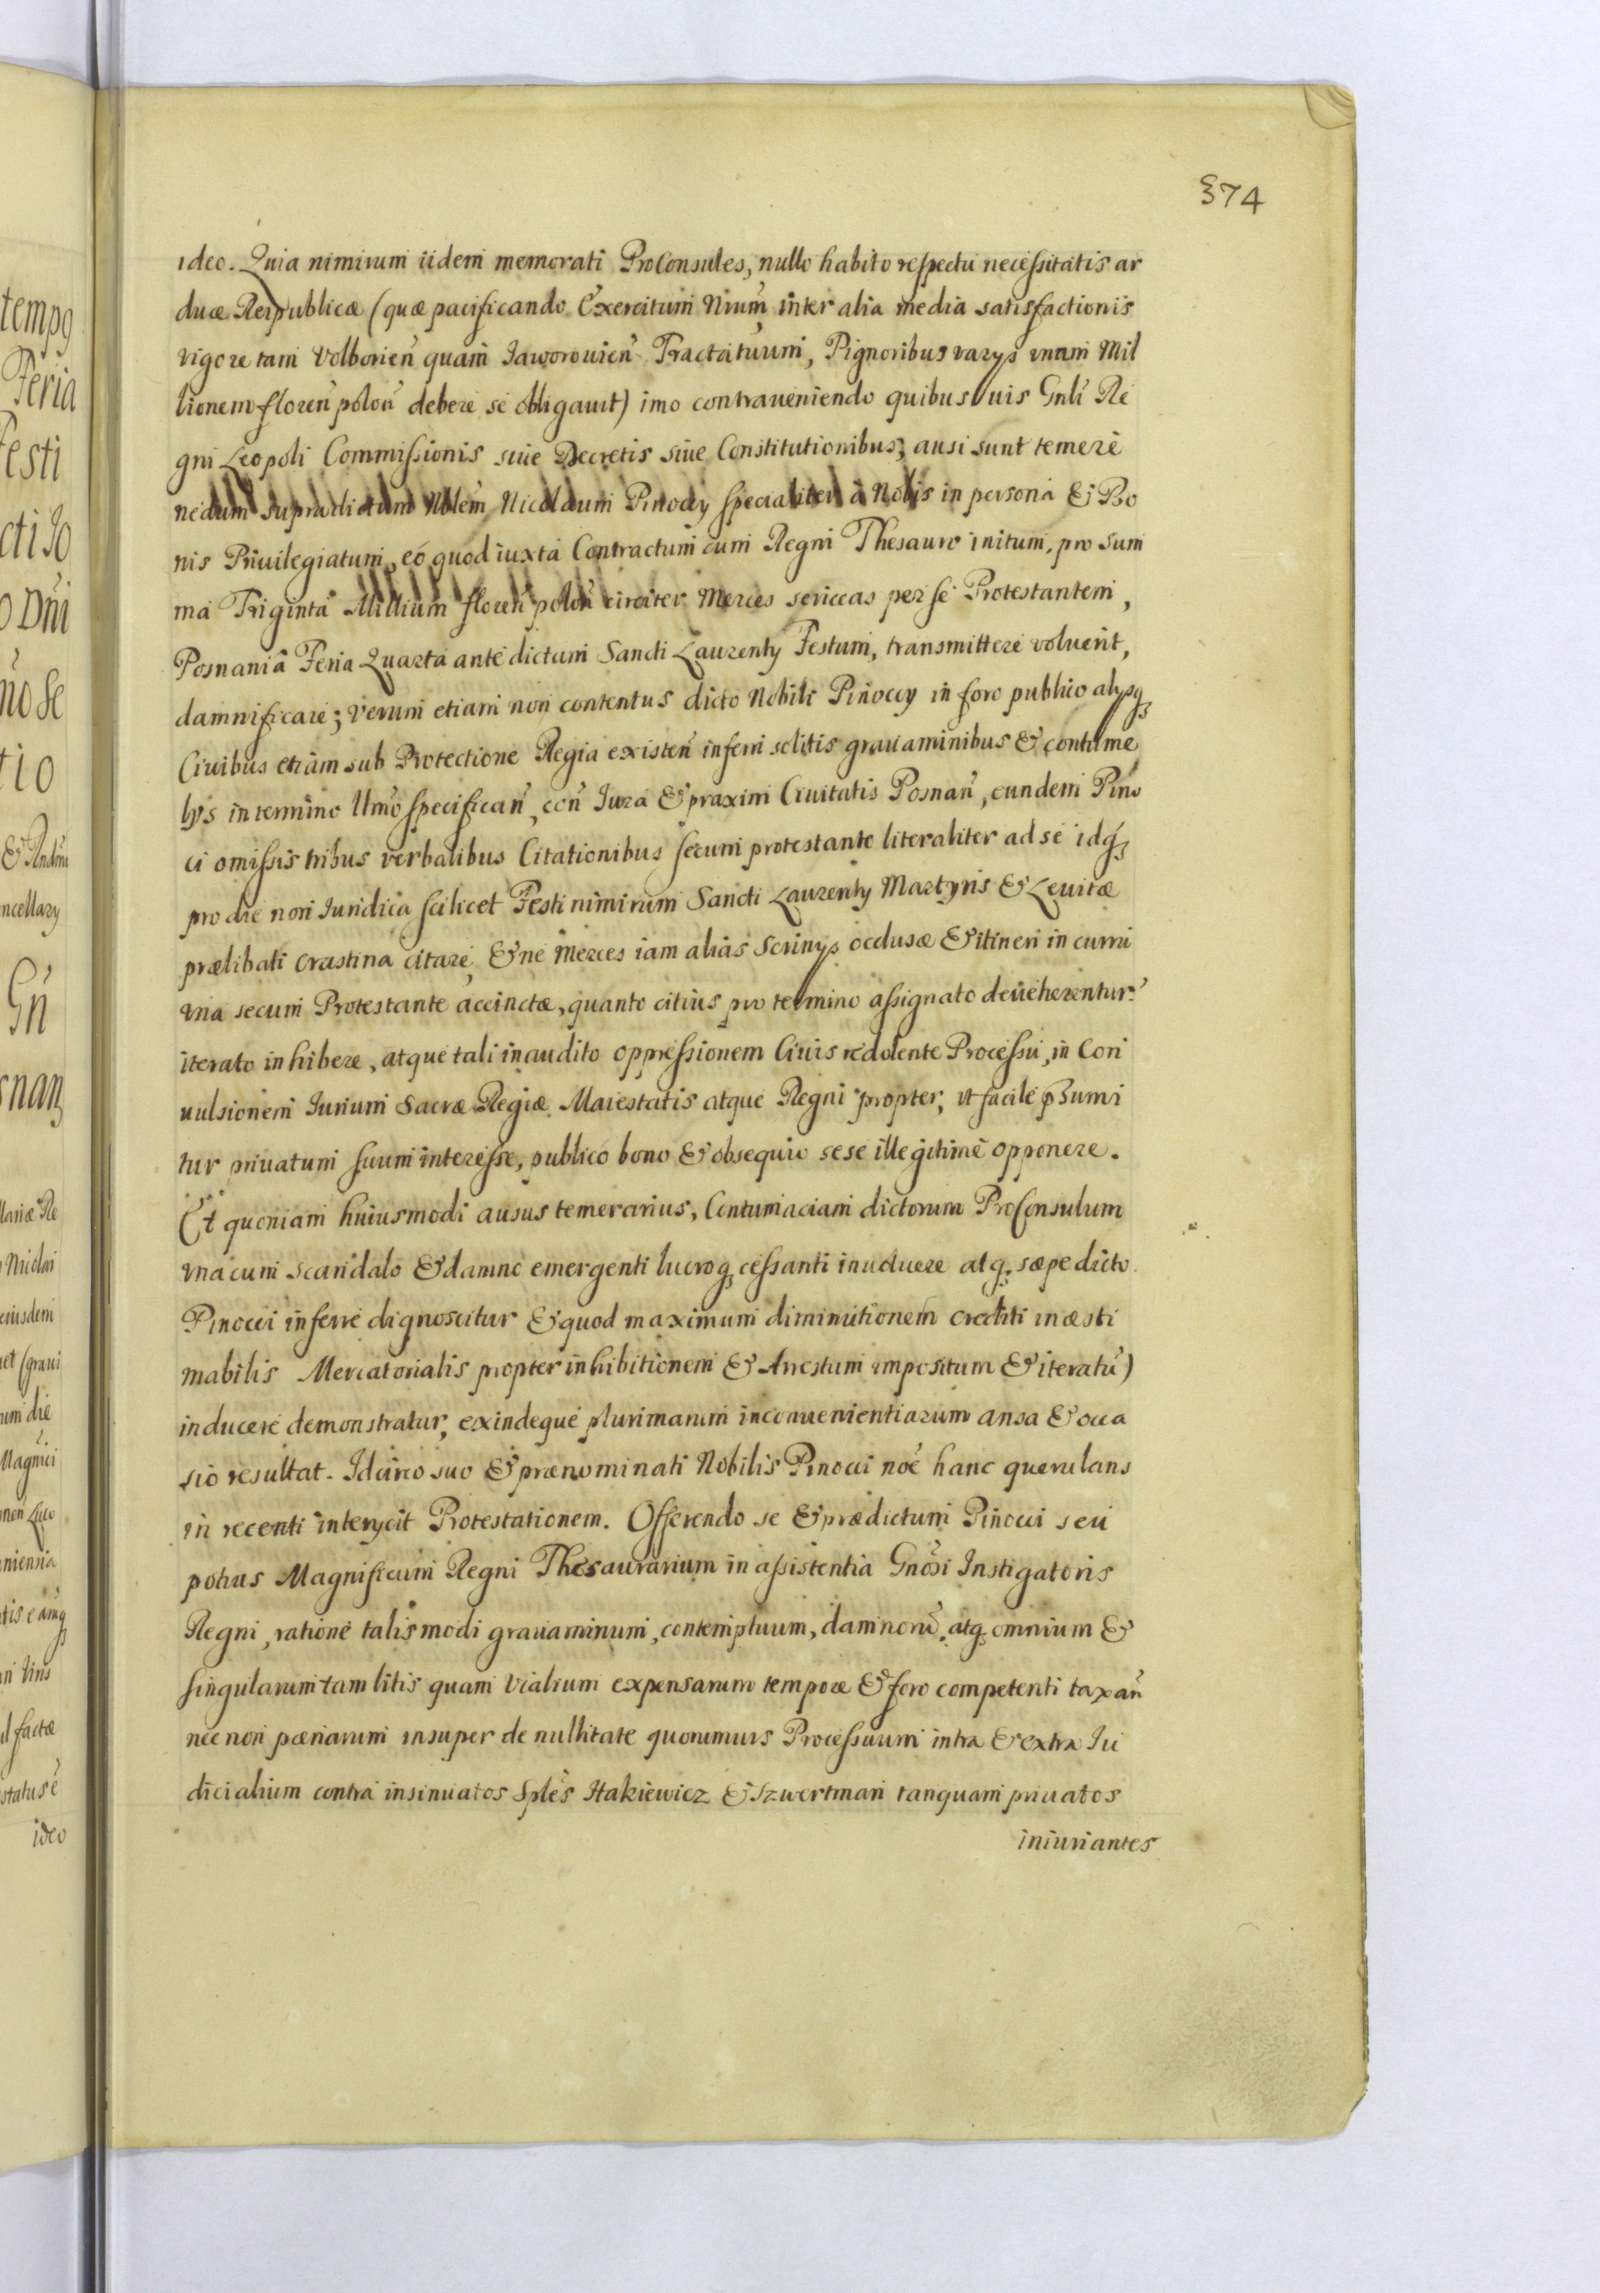 574
ideo. Quia nimirum iidem memorati ProConsules, nullo habito respectu necessitatis ar
duæ Reipublicæ (quæ pacificando Exercitum Nrum, inter alia media satisfactionis
vigore tam Volborien quam Iaworouien Tractatuum, Pignoribus varys vnam Mil
lionem floren polon debere se obligauit) imo contraueniendo quibusuis Gnli Re
gni Leopoli Commissionis siue Decretis siue Constitutionibus, ausi sunt temerè
nedum supradictum Nblem Nicolaum Pinocy specialiter à Nobis in persona & Bo
nis Priuilegiatum, eò quod iuxta Contractum cum Regni Thesauro initum, pro sum
ma Triginta Millium floren polon circiter Merces sericeas per se Protestantem,
Posnaniâ Feria Quarta ante dictam Sancti Laurenty Festum, transmittere voluerit,
damnificare; verum etiam non contentus dicto Nobili Pinoccy in foro publico alysq3
Ciuibus etiam sub Protectione Regia existen inferri solitis grauaminibus & contume
lys in termino Umo specifican, con Iura & praxim Ciuitatis Posnan, eundem Pino
ci omissis tribus verbalibus Citationibus secum protestante literaliter ad se idq3
pro die non Iuridica scilicet Festi nimirum Sancti Laurenty Martyris & Leuitæ
prælibati crastina citare, & ne Merces iam alias Scrinys occlusæ & itineri in curru
vna secum Protestante accinctæ, quanto citius pro termino assignato deueherentur
iterato inhibere, atque tali inaudito oppressionem Ciuis redolente Processu, in Con
uulsionem Iurium Sacræ Regiæ Maiestatis atque Regni propter, vt facile psumi
tur priuatum suum interesse, publico bono & obsequio sese illegitimè opponere.
Et quoniam huiusmodi ausus temerarius, Contumaciam dictorum ProConsulum
vna cum scandalo & damno emergenti lucroq3 cessanti inuoluere atq3 sæpe dicto
Pinocci inferre dignoscitur & quod maximum diminutionem crediti inæsti
mabilis Mercatorialis propter inhibitionem & Arrestum impositum & iteratu)
inducere demonstratur, exindeque plurimarum inconuenientiarum ansa & occa
sio resultat. Idcirco suo & prænominati Nobilis Pinocci noe hanc querulans
in recenti interycit Protestationem. Offerendo se & prædictum Pinocci seu
potius Magnificum Regni Thesaurarium in assistentia Gnosi Instigatoris
Regni, ratione talismodi grauaminum, contemptuum, damnoru, atq3 omnium &
singularum tam litis quam vialium expensarum tempore & foro competenti taxan
nec non pænarum insuper de nullitate quorumuis Processuum intra & extra Iu
dicialium contra insinuatos Sples Stakiewicz & Szwertman tanquam priuatos
iniuriantes
tempo
Feria
Festi
cti Io
Dni
no se
tio
ncellary
Gn
snanq3
lariæ Re
Nicolai
eiusdem
et (graui
um die
Magnici
niennia
n Iuris
d factæ
status è
ideo